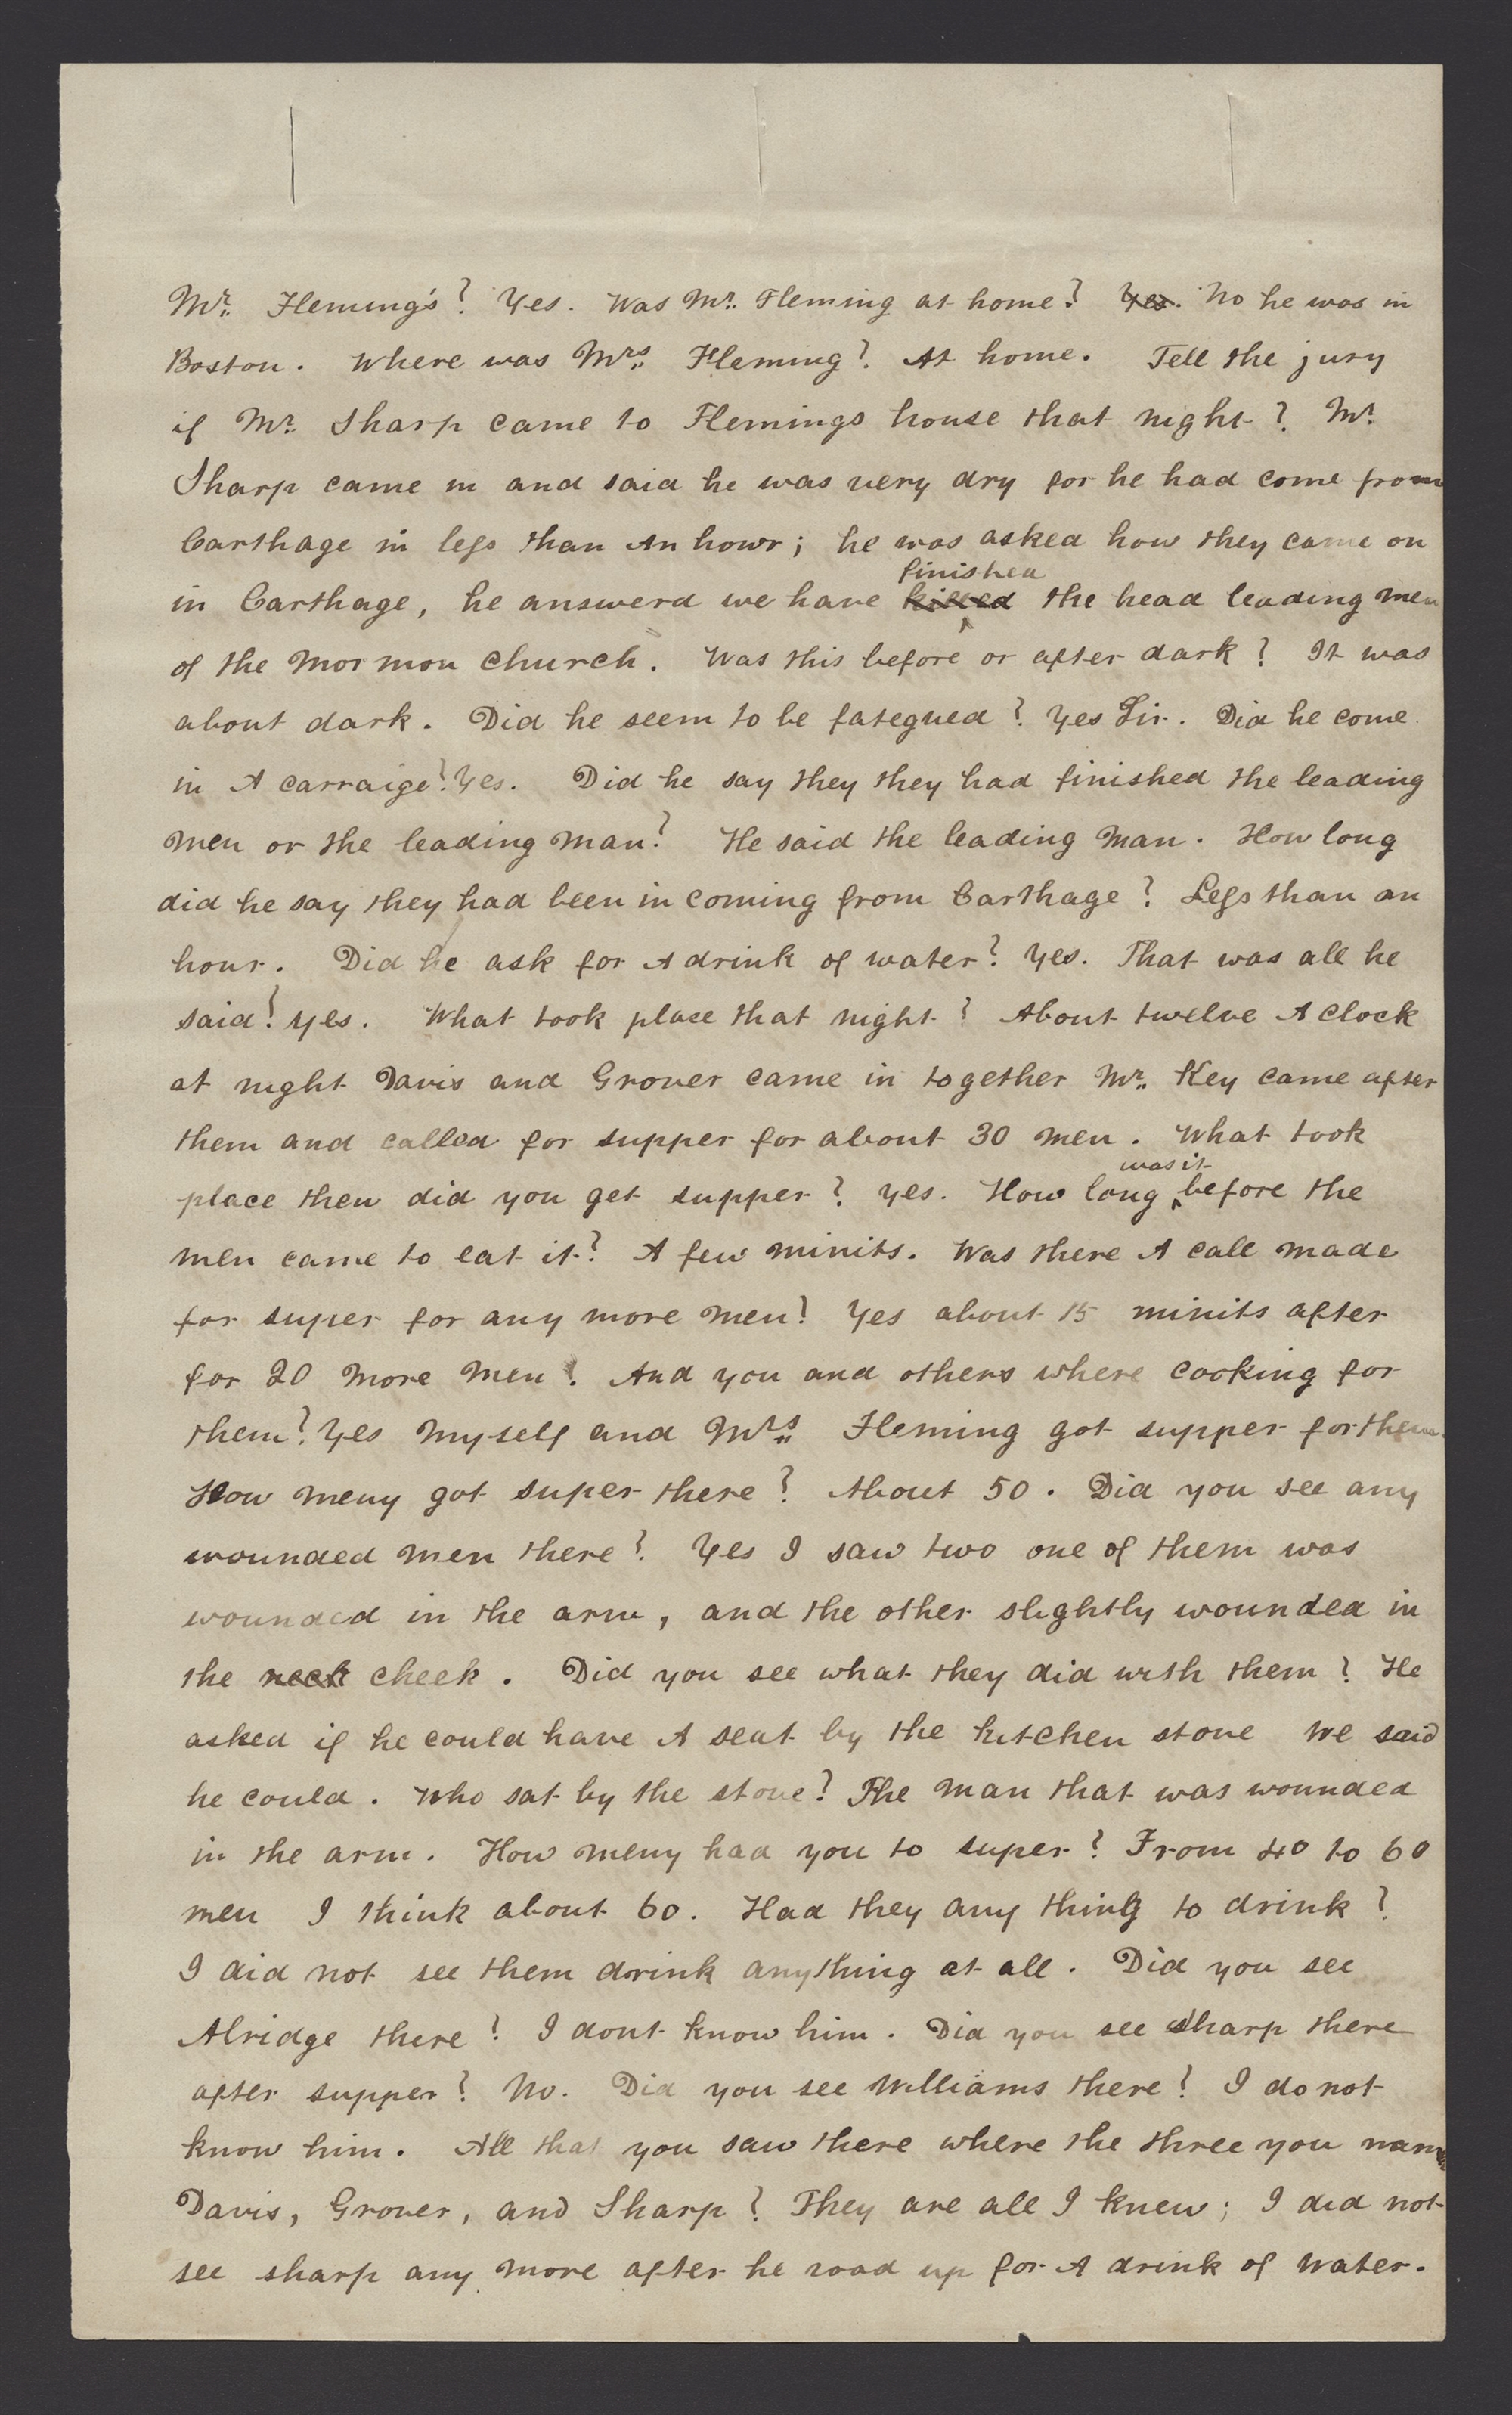 Mr. Fleming's? Yes. Was Mr. Fleming at home? Yes. No he was in
Boston. Where was Mrs. Fleming? At home. Tell the jury
if Mr. Sharp came to Flemings house that night? Mr.
Sharp came in and said he was very dry for he had come from
Carthage in less than An howr; he was asked how they came on
finished
in Carthage, he answerd we have killed the head leading men
of the Mormon Church. Was this before or after dark? It was
about dark. Did he seem to be fategued? Yes Sir. Did he come
in A carraige? Yes. Did he say they they had finished the leading
men or the leading man? He said the leading Man. How long
did he say they had been in coming from Carthage? Less than an
hour. Did he ask for A drink of water? Yes. That was all he
said? Yes. What took place that night? About twelve A Clock
at night Davis and Grover came in together Mr. Key came after
them and called for supper for about 30 men. What took
was it
place then did you get supper? Yes. How long before the
men came to eat it? A few minits. Was there A call made
for super for any more men? Yes about 15 minits after
for 20 more men? And you and others where cooking for
them? Yes Myself and Mrs. Fleming got supper for them.
How meny got super there? About 50. Did you see any
wounded men there? Yes I saw two one of them was
wounded in the arm, and the other slightly wounded in
the neck cheek. Did you see what they did with them? He
asked if he could have A seat by the kitchen stove We said
he could. Who sat by the stove? The man that was wounded
in the arm. How meny had you to super? From 40 to 60
men I think about 60. Had they any thing to drink?
I did not see them drink anything at all. Did you see
Alridge there? I dont know him. Did you see Sharp there
after supper? No. Did you see Williams there? I do not
know him. All that you saw there where the three you name
Davis, Grover, and Sharp? They are all I knew; I did not
see sharp any more after he road up for A drink of Water.